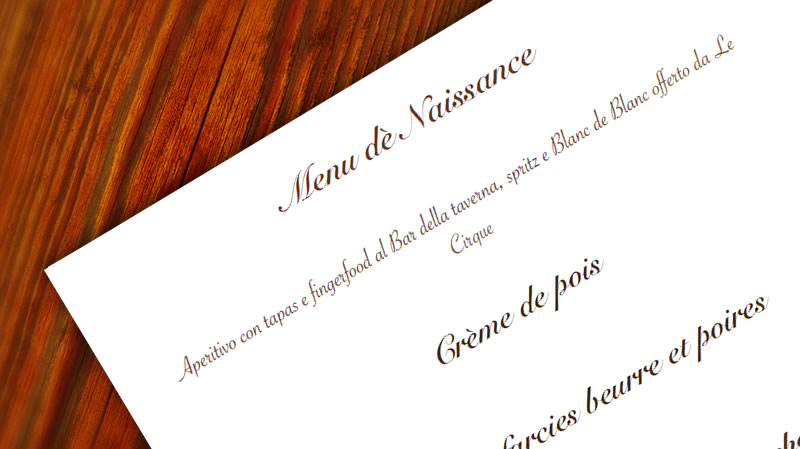 Menu dè Naissance
Aperitivo con tapas e fingerfood al Bar della taverna, spritz e Blanc de Blanc offerto da Le
Cirque
Crème de pois
farcies beurre et poires